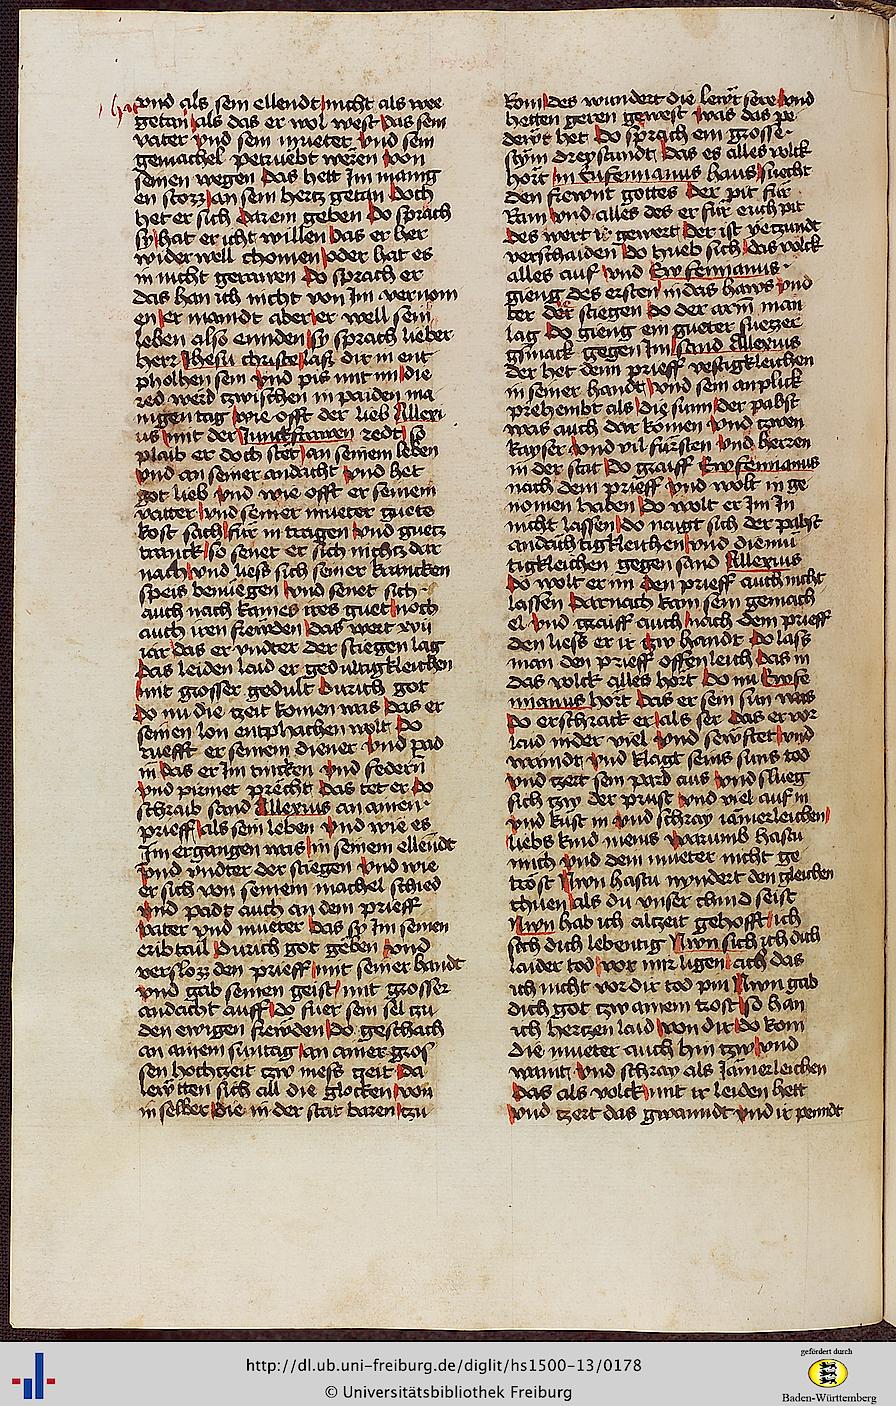 hat
vnd als sein ellendt nicht als wee
getan als das er wol west das sein
vater vnd sein mueter vnd sein
gemachel petruebt weren von
seinen wegen das hett Im manig
en stozz an sein hertz getan doch
het er sich darein geben Do sprach
sy hat er icht willen das er her
wider well chomen oder hat es
in nicht gerawen Do sprach er
das han ich nicht von Im vernom
en er maindt aber er well sein
leben also ennden sy sprach lieber
herr Jhesu christe las dir in ent
pholhen sein vnd pis mit im die
red werd tzwischen in paiden ma
nigen tag wie offt der lieb Allexi
us mit der Junckfrawen redt so
plaib er doch stet an seinem leben
vnd an seiner andacht vnd het
got lieb vnd wie offt er seinem
vatter vnd seiner mueter guete
kost sach fur in tragen vnd guetz
tranck so senet er sich nichtz dar
nach vnd liess sich seiner krancken
speis benuegen vnd senet sich
auch nach kaines wes guet noch
auch iren frewden das wert xvii
iar das er vndter der stiegen lag
das leiden laid er gedultigkleichen
mit grosser gedult durich got
Do nu die zeit komen was das er
seinen lon entphachen wolt Do
ruefft er seinem diener vnd pad
in das er Im tincken vnd federn
vnd pirmet precht das tet er Do
schraib sand Allexius an ainen
prieff als sein leben vnd wie es
Im ergangen was in seinem ellendt
vnd vndter der stiegen vnd wie
er sich von seinem machel schied
vnd padt auch an dem prieff
vater vnd mueter das sy Im seinen
erib tail durich got geben vnd
verslozz den prieff mit seiner handt
vnd gab seinen geist mit grosser
andacht auff do fuer sein sel zu
den ewigen frewden Do geschach
an ainem suntag an ainer gros
sen hochzeit tzw mess zeit Da
lewtten sich all die glocken von
in selber die in der stat waren zu
Rom des wundert die lewt sere vnd
hetten geren gewest was das pe
dewt het Do sprach ein grosse
stym dreystundt das es alles volck
hort in Eufemianus haus suecht
den frewnt gottes der pit fur
Ram vnd alles des er fur euch pit
des wert ir gewert der ist yetzundt
verschaiden do hueb sich das volck
alles auf vnd Ewfemianus
gieng des ersten in das haws vnd
ter der stiegen do der arm man
lag do gieng ein gueter suezzer
gsmack gegen Im sand Allexius
der het denn prieff vestigkleichen
in seiner handt vnd sein anplick
prehembt als die sunn der pabst
was auch dar komen vnd tzwen
kayser vnd vil fursten vnd herren
in der stat Do graiff Ewfemianus
nach dem prieff vnd wolt in ge
nomen haben Do wolt er Im In
nicht lassen Do naigt sich der pabst
andachtigkleichen vnd diemu
tigkleichen gegen sand Allexius
Do wolt er im den prieff auch nicht
lassen Darnach kam sein gemach
el vnd graiff auch nach dem prieff
den liess er ir tzw handt Do lass
man den prieff offenleich das in
das volck alles hort Do nu Ewfe
mianus hort das er sein sun was
Do erschrack er als ser das er vor
laid nider viel vnd sewftet vnd
waindt vnd klagt seins suns tod
vnd tzert sein pard aus vnd slueg
sich tzw der prust vnd viel auf in
vnd kust in vnd schray iamerleichen
liebs kind meins warumb hastu
mich vnd dein mueter nicht ge
trost Nwn hastu nyndert den gleichen
thuen als du vnser chind seist
Nwn hab ich altzeit gehofft ich
sich dich lebentig Nwn sich ich dich
laider tod vor mir ligen ach das
ich nicht vor dir tod pin Nwn gab
dich got tzw ainem trost so han
ich hertzen laid von dir Do kom
die mueter auch hin tzw vnd
waint vnd schray als Jamerleichen
das als volck mit ir leiden hett
vnd tzert das gwanndt vnd ir penndt
http://dl.ub.uni-freiburg.de/diglit/hs1500-13/0178
© Universitätsbibliothek Freiburg
gefördert durch
Baden-Württemberg